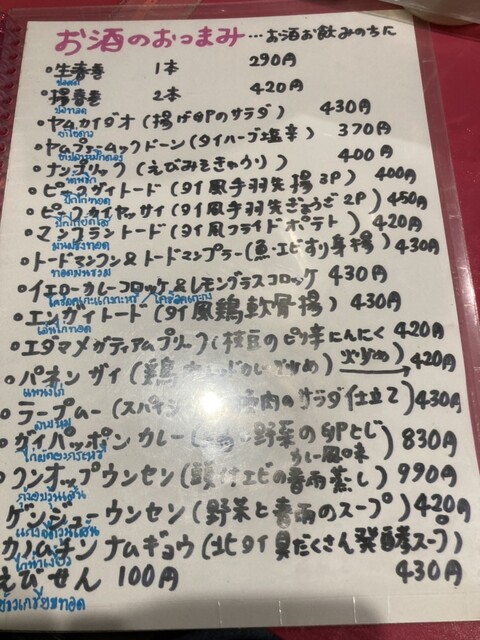 お酒のおつまみ…お酒お飲みのちに
・生春巻 1本 290円
ปอสด
・揚春巻 2本 420円
ปอทอด
・ヤムカイダオ (揚げ卵のサラダ) 430円
ยำไข่ดาว
・ヤムプァームックドーン (タイハーブ塩辛) 370円
・ナンプリック (えびみそきゅうり) 400円
น้ำพริก
・ピークガイトード (タイ風手羽先揚3P) 400円
ปีกไก่ทอด
・ピークガイヤッサイ (タイ風手羽先ぎょうざ2P) 450円
ปีกไก่ยัดไส้
・マンフラントード (タイ風フライドポテト) 420円
มันฝรั่งทอด
・トードマンクン&トードマンプラー (魚・エビすり身揚) 430円
ทอดมันรวม
・イエローカレーコロッケ&レモングラスコロッケ 430円
・エンガイトード (タイ風鶏軟骨揚) 430円
เอ็นไก่ทอด
・エダマメガティアムプリック (枝豆のピリ辛にんにく炒め) 420円
・パネンガイ (鶏 め) 420円
แพนงไก่
・ラープムー (スパイシ 肉のサラダ仕立て) 430円
ลาบหมู
・ガイパッポンカレー ( 野菜の卵とじカレー風味) 830円
ไก่ผัดผงกะหรี่
・クンオップウンセン (頭付エビの春雨蒸し) 990円
กุ้งอบวุ้นเส้น
ゲンジューウンセン (野菜と春雨のスープ) 420円
แกงจืดวุ้นเส้น
カノムチンナムギョウ (北タイ具だくさん発酵スープ) 430円
えびせん 100円
ข้าวเกรียบทอด